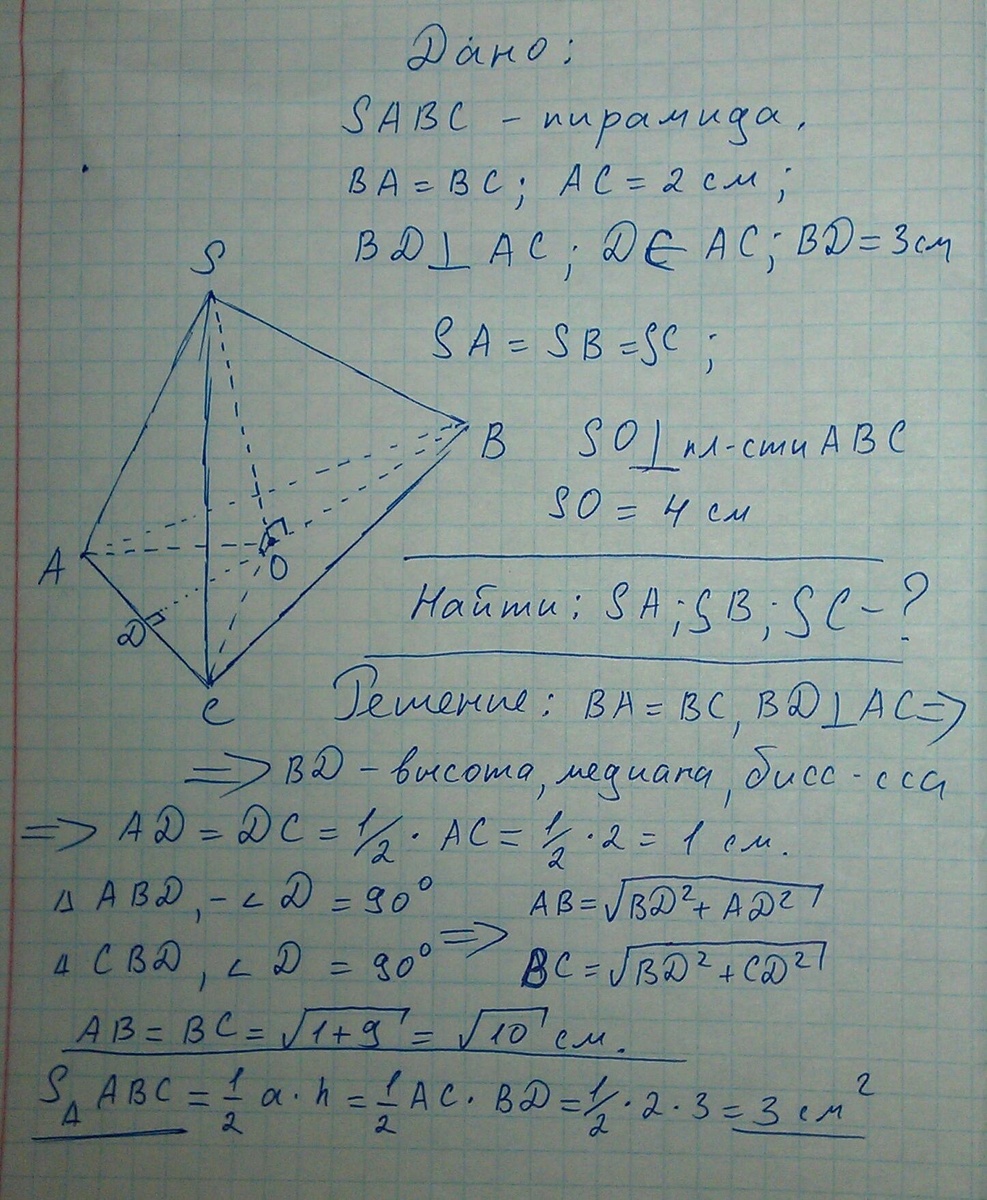 Дано:
SABC - пирамида.
BA = BC; AC = 2 см;
BD ⊥ AC; D ∈ AC; BD = 3 см
S
SA = SB = SC;
B
SO ⊥ пл-сти ABC
SO = 4 см
A
O
D
C
Найти: SA; SB; SC - ?
Решение: BA = BC, BD ⊥ AC =>
=> BD - высота, медиана, бисс-сса
=> AD = DC = 1/2 · AC = 1/2 · 2 = 1 см.
△ ABD, - ∠D = 90° AB = √(BD² + AD²)
=>
△ CBD, ∠D = 90° BC = √(BD² + CD²)
AB = BC = √(1+9) = √10 см.
S△ ABC = 1/2 a · h = 1/2 AC · BD = 1/2 · 2 · 3 = 3 см²